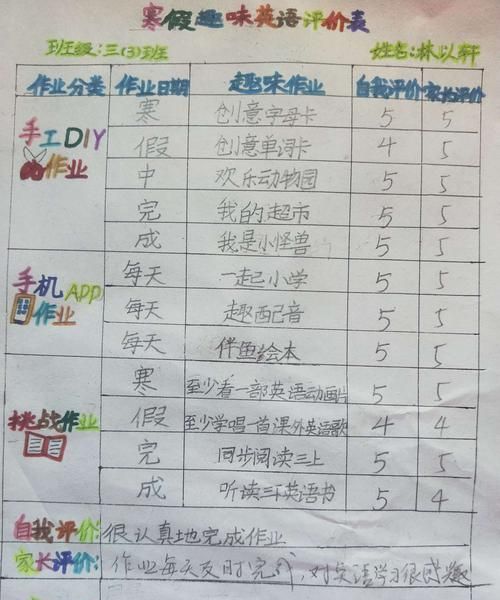 寒假趣味英语评价表
班级:三(3)班班 姓名:林以轩
作业分类 作业日期 趣味作业 自我评价 家长评价
手工DIY作业
寒 创意字母卡 5 5
假 创意单词卡 4 5
中 欢乐动物园 5 5
完 我的超市 5 5
成 我是小怪兽 5 5
手机APP作业
每天 一起小学 5 5
每天 趣配音 5 5
每天 伴鱼绘本 5 5
挑战作业
寒 至少看一部英语动画片 5 5
假 至少学唱一首课外英语歌 4 4
完 同步阅读三上 5 5
成 听读三下英语书 5 4
自我评价: 很认真地完成作业
家长评价: 作业每天及时完成,对英语学习很感兴趣